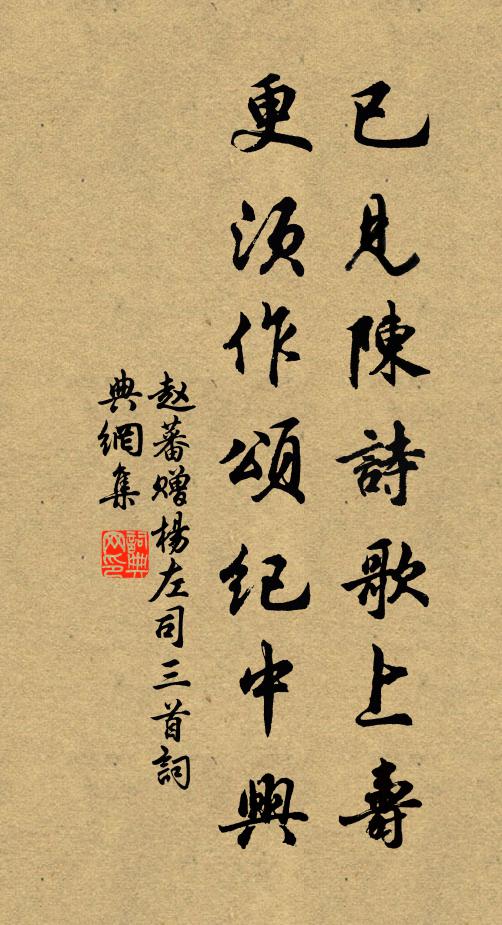 已見陳詩歌上壽
更須作頌紀中興
赵蕃赠楊左司三首詞
典網集
詞典
网印